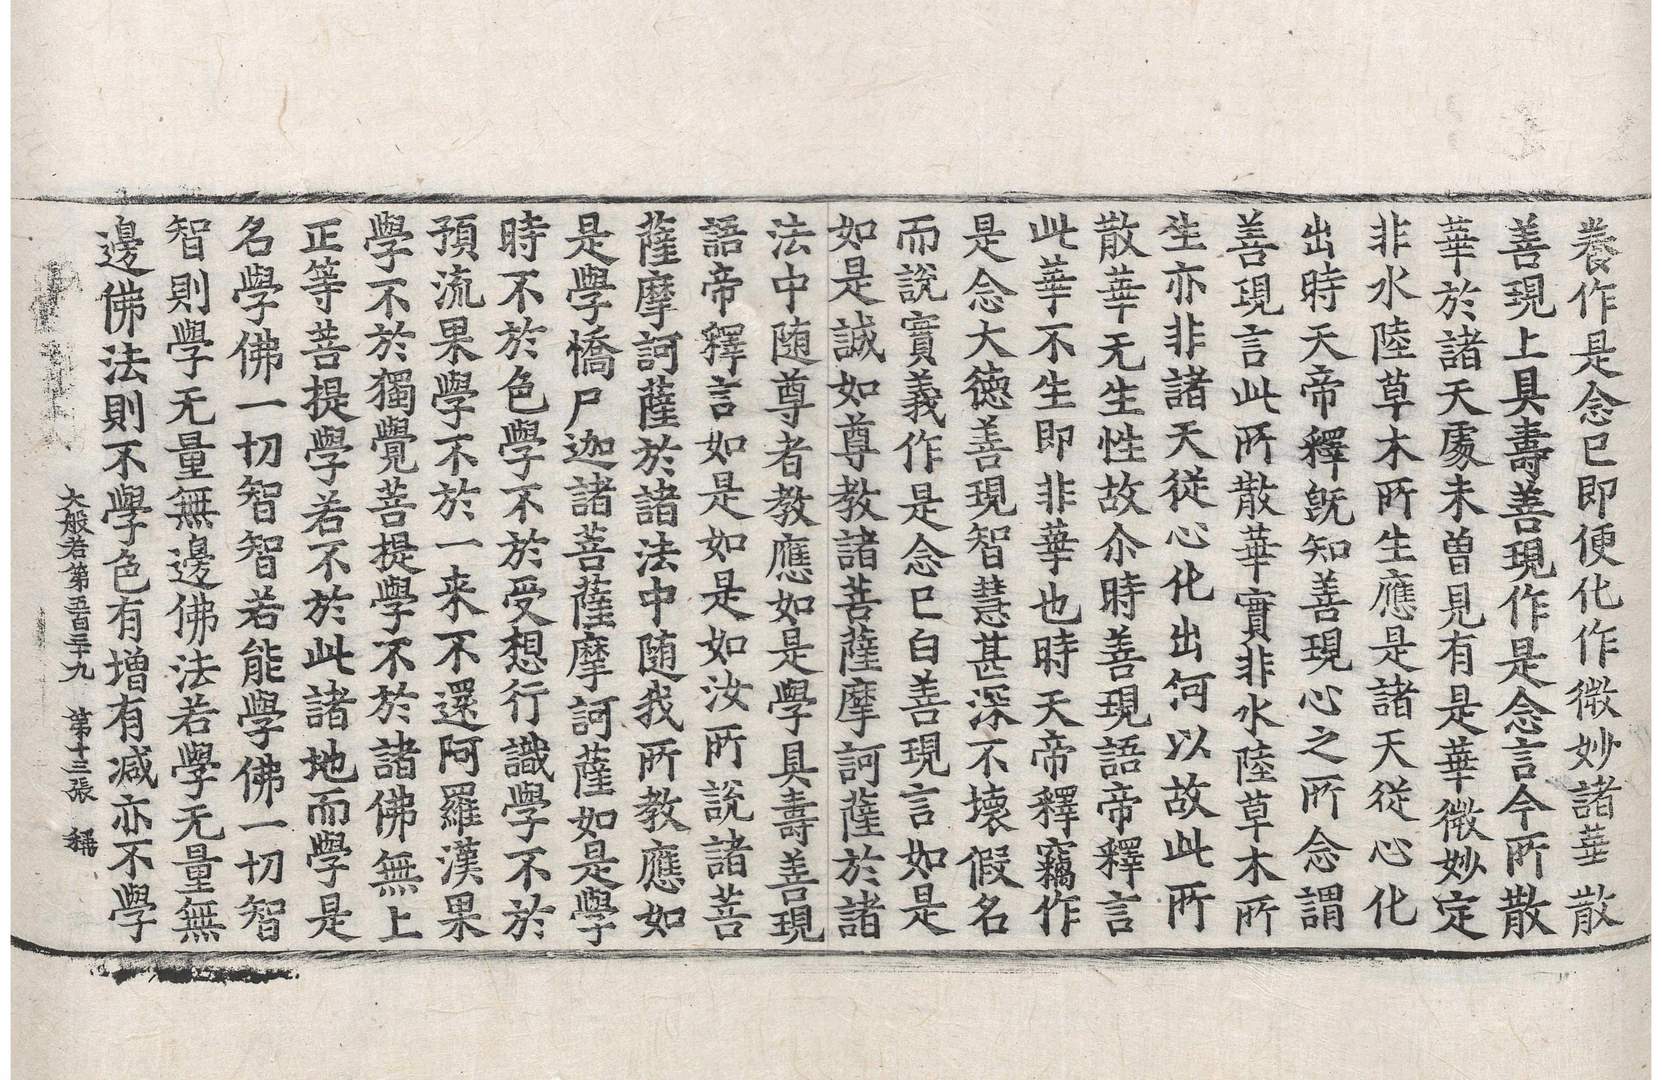 養作是念已即便化作微妙諸華散
善現上具壽善現作是念言今所散
華於諸天處未曾見有是華微妙定
非水陸草木所生應是諸天從心化
出時天帝釋旣知善現心之所念謂
善現言此所散華實非水陸草木所
生亦非諸天從心化出何以故此所
散華无生性故尒時善現語帝釋言
此華不生即非華也時天帝釋竊作
是念大德善現智慧甚深不壞假名
而說實義作是念已白善現言如是
如是誠如尊教諸菩薩摩訶薩於諸
法中随尊者教應如是學具壽善現
語帝釋言如是如是如汝所說諸菩
薩摩訶薩於諸法中随我所教應如
是學憍尸迦諸菩薩摩訶薩如是學
時不於色學不於受想行識學不於
預流果學不於一来不還阿羅漢果
學不於獨覺菩提學不於諸佛無上
正等菩提學若不於此諸地而學是
名學佛一切智智若能學佛一切智
智則學无量無邊佛法若學无量無
邊佛法則不學色有增有减亦不學
大般若第五百三十九 第十三張 稱